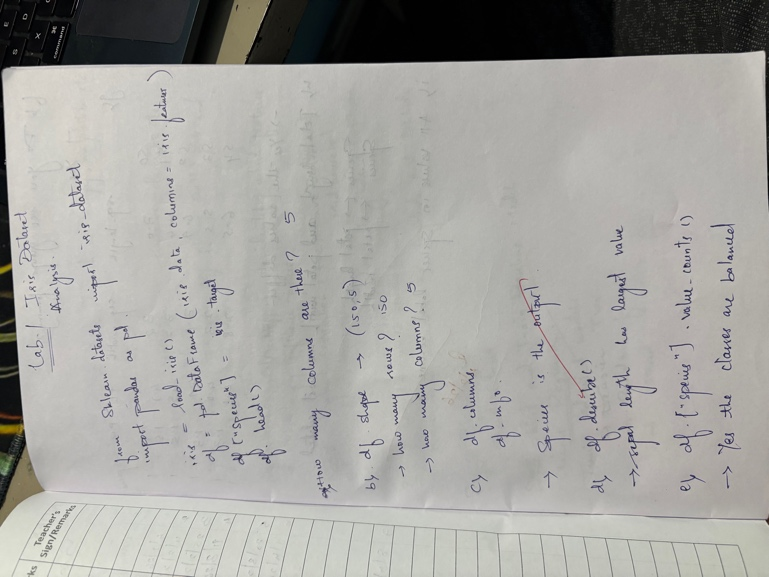 Lab.1 Iris Dataset
Analysis.
from Sklearn.datasets import iris_dataset
import pandas as pd.
iris = load_iris()
df = pd.DataFrame (iris.data, columns = iris.features)
df["species"] = iris.target
df.head()
a) How many columns are there? 5
b) df shape → (150,5)
→ how many rows? 150
→ how many columns? 5
c) df columns.
df.info.
→ Species is the output
d) df.describe()
→ sepal length has largest value
e) df.["species"].value_counts()
→ Yes the classes are balanced
Teacher's
Sign/Remarks
ks
command